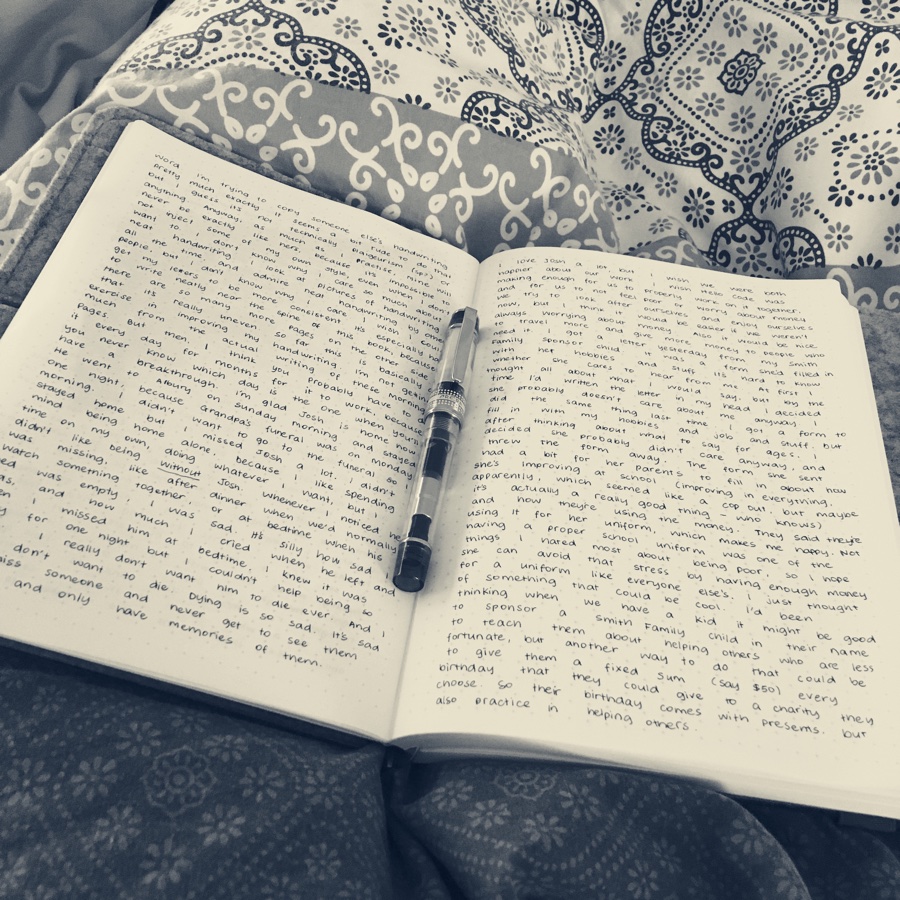 word. I'm trying to copy someone else's handwriting
pretty much exactly. It seems a bit rude to do this
but I guess it's not technically plagiarism (sp?) or
anything. Anyway, as much as I practise, it's impossible to
never be exactly like hers because I
not inject some of my own style, even when I don't
want to. I don't know why I care so much about
neat handwriting. I look at pictures of handwriting
all the time and admire neat handwriting by
people, but I don't I wish I could
get my letters to be more consistent. It's especially hard
to write neatly near the spine of this book, because
there are so many more pages on the side
that it's really uneven. So far this is the
exercise from the actual handwriting, I'm not getting
much improving my handwriting of these
pages. But then, I think you probably have to
you every day for months for it to work,
you never know which day is the one when you'll
have a breakthrough. I'm glad Josh is home now.
He went to Albury on Sunday and stayed
one night, because Grandpa's funeral was on Monday
morning. I didn't want to go to the funeral so
stayed home but I missed Josh a lot. I didn't
mind being home alone, because I like spending
time on my own, doing whatever I want, but I
didn't like being without Josh. Whenever I noticed he
was missing, like after dinner when we'd normally
watch something together, or at bedtime when his
was empty, I was so sad. It's silly how sad
and how much I cried when he left and
I missed him at bedtime. I knew it was
for one night but I couldn't help being so
I really don't want him to die ever. And I
don't want to die. Dying is so sad. It's sad
miss someone and never get to see them
and only have memories of them.
love Josh a lot, but I wish we were both
happier about our work. I wish these code was
making enough for us to properly work on it together,
and for us to not feel poor or worry about money
now, but I think we
always worrying about money. Also it would be nice
to travel more and give more money to people who
need it. I got a letter yesterday from my Smith
Family sponsor child. It was a form she'd filled in
with her hobbies and stuff. It's hard to know
whether she cares to hear from me. At first I
thought all about what I would say, but by the
time I'd written the letter in my head I decided
she probably doesn't care about me anyway. I
did the same thing last time I got a form to
fill in with my hobbies and job and stuff, but
after thinking about what to say for ages, I
decided she probably didn't care anyway, and
threw the form away. The form she sent
had a bit for her parents to fill in about how
she's improving at school (improving in everything,
apparently, which seemed like a cop out, but maybe
it's actually a really good thing - who knows)
and how they're using the money. They said they're
using it for her uniform, which makes me happy. Not
having a proper school uniform was one of the
things I hated most about being poor, so I hope
she can avoid that stress by having enough money
for a uniform like everyone else's. I just thought
of something that could be cool. I'd been
thinking when we have a kid it might be good
to sponsor a Smith Family child in their name
to teach them about helping others who are less
fortunate, but another way to do that could be
to give them a fixed sum (say $50) every
birthday that they could give to a charity they
choose. So their birthday comes with presents, but
also practice in helping others.